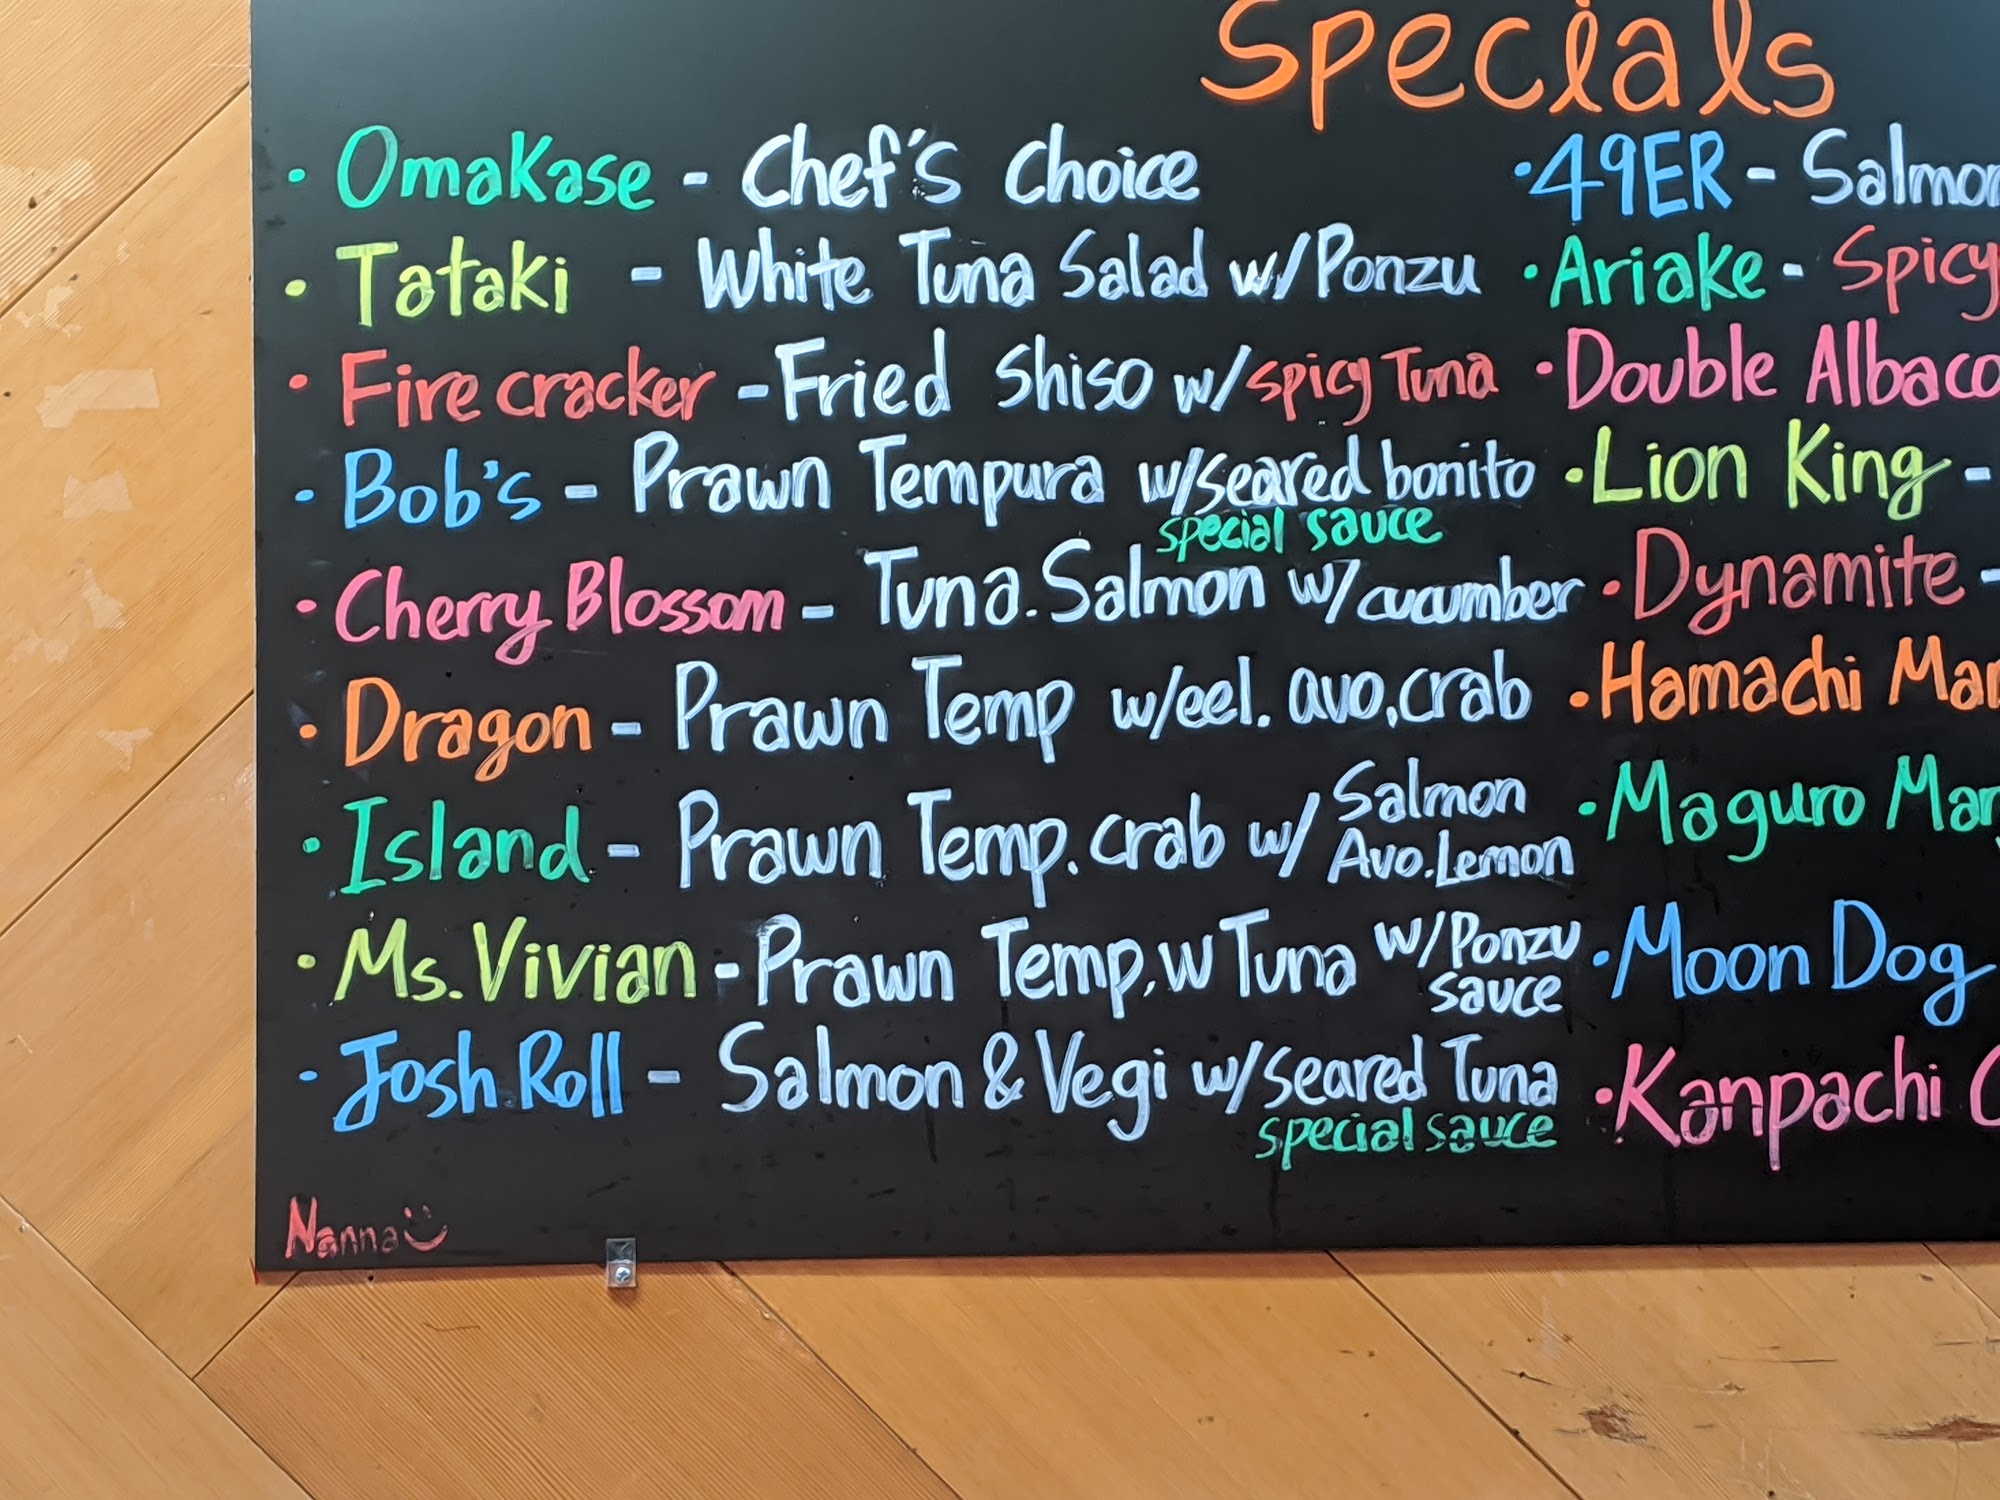 Specials
• Omakase - Chef's Choice
• Tataki - White Tuna Salad w/Ponzu
• Fire cracker - Fried Shiso w/spicy Tuna
• Bob's - Prawn Tempura w/seared bonito
special sauce
• Cherry Blossom - Tuna. Salmon w/cucumber
• Dragon - Prawn Temp w/eel. avo, crab
• Island - Prawn Temp. crab w/ Salmon
Avo. Lemon
• Ms. Vivian - Prawn Temp, w Tuna w/Ponzu
sauce
• Josh Roll - Salmon & Vegi w/seared Tuna
special sauce
Nanna
• 49ER - Salmon
• Ariake - Spicy
• Double
• Lion King -
• Dynamite -
• Hamachi
• Maguro
• Moon Dog
• Kanpachi